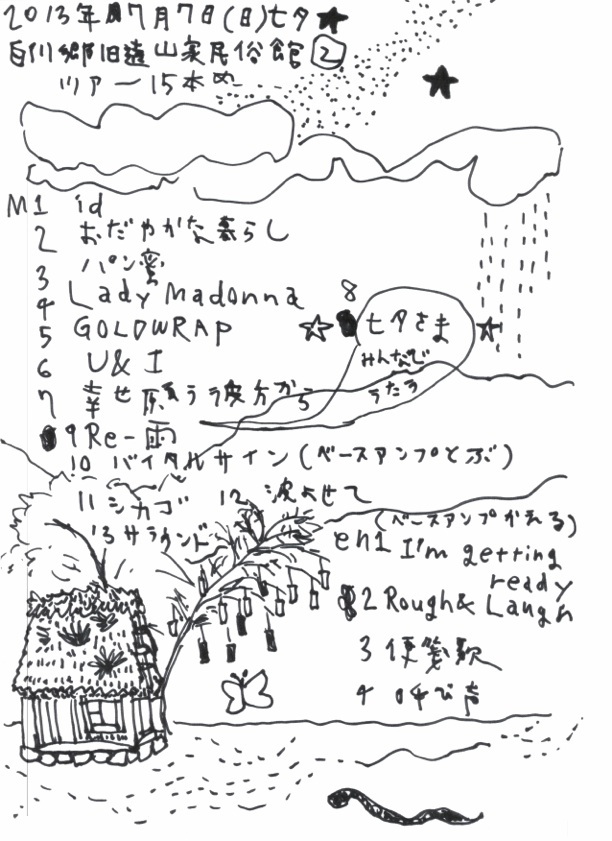 2013年7月7日(日)七夕
白川郷旧遠山家民俗館 2
ツアー15本め
M1 id
2 おだやかな暮らし
3 パン窯
4 Lady Madonna
5 GOLDWRAP
6 U&I
7 幸せ願うう彼方から
8
七夕さま
みんなで
うたう
9 Re-雨
10 バイタルサイン(ベースアンプとぶ)
11 シカゴ 12 波よせて
13 サラウンド
(ベースアンプかえる)
en1 I'm getting
ready
2 Rough & Laugh
3 便箋歌
4 呼び声